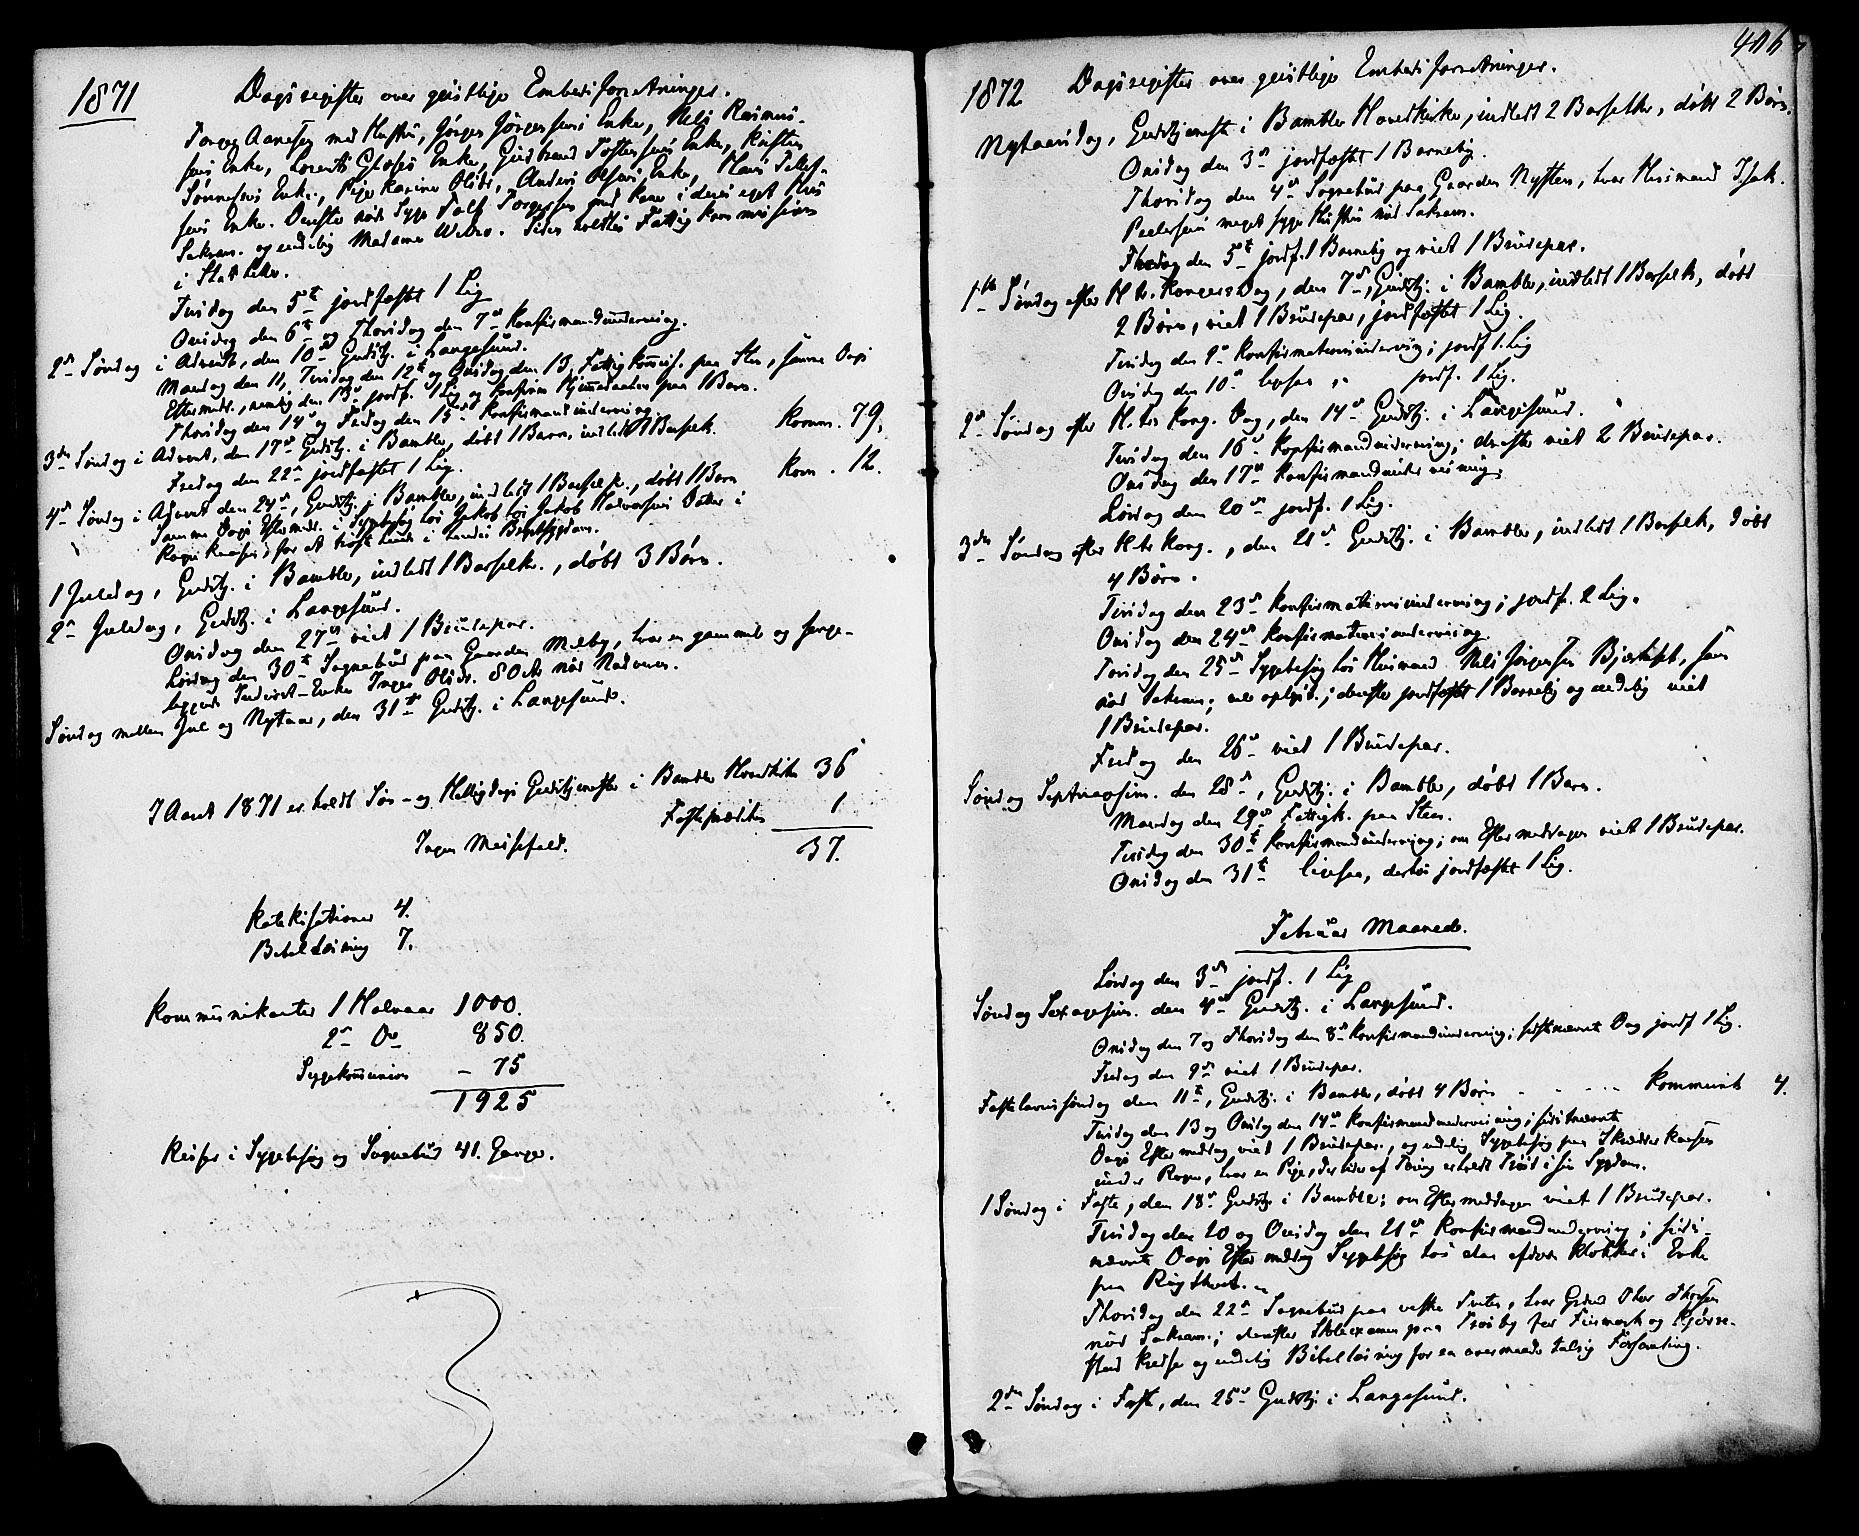 1871
Dagsregister over geistlige Embedsforretninger.
Torger Aanesen med Hustru, Jörgen Jörgensens Enke, Nels Rasmus-
sens Enke, Enke, Gudbrand Tostensens Enke,
Enke, Pige Karine Olsdr, Anders Olsens Enke, Hans Tellef-
sens Enke. Derefter nöd Syge Talf Torgersen med Kone i deres eget Huus
Sakram. og endelig Madame Webro. Siden holdtes Fattigkommission
i Stathelle.
Tirsdag den 5te jordfæstet 1 Lig
Onsdag den 6te og Thorsdag den 7de Konfirmandundervisning.
2den Söndag i Advent, den 10de Gudstj. i Langesund.
Mandag den 11, Tirsdag den 12te og Onsdag den 13, Fattigkommis. paa Sten, samme Dags
Eftermdr., nemlig den 13de jordf. 1 Lig og konfirm. Hjemmedaaben paa 1 Barn.
Thorsdag den 14de og Fredag den 15de Konfirmandundervisning
3die Söndag i Advent, den 17de Gudstj. i Bamble, döbt 1 Barn, indledt 1 Barselk. Komm. 79.
Fredag den 22de jordfæstet 1 Lig.
4de Söndag i Advent den 24de, Gudstj. i Bamble, indledt 1 Barselk., döbt 1 Barn Kom. 12.
Samme Dags Eftermdr. i Sygebesög hos Jakob Halvorsens Datter i
Rogns for at tröste hende i hendes Brystsygdom.
1 Juledag, Gudstj. i Bamble, indledt 1 Barselk., döbt 3 Börn.
2den Juledag, Gudstj. i Langesund.
Onsdag den 27de viet 1 Brudepar.
Löverdag den 30te Sognebud paa Gaarden Melby, hvor en gammel og senge-
liggende Inderst-Enke Inger Olsdr. 80 Aar nöd Nadveren.
Söndag mellem Jul og Nytaar, den 31te Gudstj. i Langesund.
I Aaret 1871 er holdt Sön- og Helligdags Gudstjenester i Bamble Hovedkirke 36
Fasteprædiken 1
Ingen Messefald. 37.
Katekisationer 4.
Bibellæsning 7.
Kommunikanter 1 Halvaar 1000.
2det Do 850.
Sygekommunion - 75
1925
Reiser i Sygebesög og Sognebud 41 Gange.
1872
Dagsregister over geistlige Embedsforretninger.
406
Nytaarsdag, Gudstjeneste i Bamble Hovedkirke, indledt 2 Barselkr., döbt 2 Börn.
Onsdag den 3de jordfæstet 1 Barnelig.
Thorsdag den 4de Sognebud paa Gaarden Nysten, hvor Husmand Isak
Pedersens meget syge Hustru nöd Sakram.
Fredag den 5te jordf. 1 Barnelig og viet 1 Brudepar.
1ste Söndag efter H. tr. Kongersdag, den 7de, Gudstj. i Bamble, indledt 1 Barselk., döbt
2 Börn, viet 1 Brudepar, jordfæstet 1 Lig.
Tirsdag den 9de Konfirmationsundervisning; jordf 1 Lig
Onsdag den 10de ligesaa „ jordf. 1 Lig.
2den Söndag efter H. tr. Kong. Dag, den 14de Gudstj. i Langesund.
Tirsdag den 16de Konfirmandundervisning; derefter viet 2 Brudepar.
Onsdag den 17de Konfirmandundervisning.
Löverdag den 20de jordf. 1 Lig.
3die Söndag efter H. tr. Kong., den 21de Gudstj. i Bamble, indledt 1 Barselk., döbt
4 Börn.
Tirsdag den 23de Konfirmationsundervisning; jordf. 2 Lig.
Onsdag den 24de Konfirmationsundervisning
Torsdag den 25de Sygebesög hos Husmand Nels Jörgensen, som
nöd Sakram.; derefter jordfæstet 1 Barnelig og endelig viet
1 Brudepar.
Fredag den 26de viet 1 Brudepar.
Söndag Septuagesim. den 28de, Gudstj. i Bamble, döbt 1 Barn.
Mandag den 29de Fattigk. paa Sten.
Tirsdag den 30te Konfirmandundervisning; om Eftermiddagen viet 1 Brudepar.
Onsdag den 31te ligesaa, derhos jordfæstet 1 Lig.
Februar Maaned.
Löverdag den 3die jordf. 1 Lig
Söndag Sexagesim. den 4de Gudstj. i Langesund.
Onsdag den 7 og Thorsdag den 8de Konfirmandundervisning; sidstnævnte Dag jordf 1 Lig.
Fredag den 9de viet 1 Brudepar.
Fastelavnssöndag den 11te, Gudstj. i Bamble, döbt 4 Börn - - ... Kommunik 4.
Tirsdag den 13 og Onsdag den 14de Konfirmandundervisning; sidstnævnte
Dags Eftermiddag viet 1 Brudepar, og endelig Sygebesög paa
under Rogns, hvor en Pige, der lider af Tæring erholdt Tröst i sin Sygdom.
1 Söndag i Faste, den 18de Gudstj. i Bamble; om Eftermiddagen viet 1 Brudepar.
Tirsdag den 20 og Onsdag den 21de Konfirmandundervisning; sidst-
nævnte Dags Eftermiddag Sygebesög hos den Klokkers Enke
paa Rigstvet.
Thorsdag den 22de Sognebud paa vestre Tveten, hvor Thorsen
nöd Sakram.; derefter Skoleexamen paa Traaby for Finmark og Kjörre-
stad Kredse og endelig Bibellæsning for en overmaade talrig Forsamling.
2den Söndag i Faste, den 25de Gudstj. i Langesund.